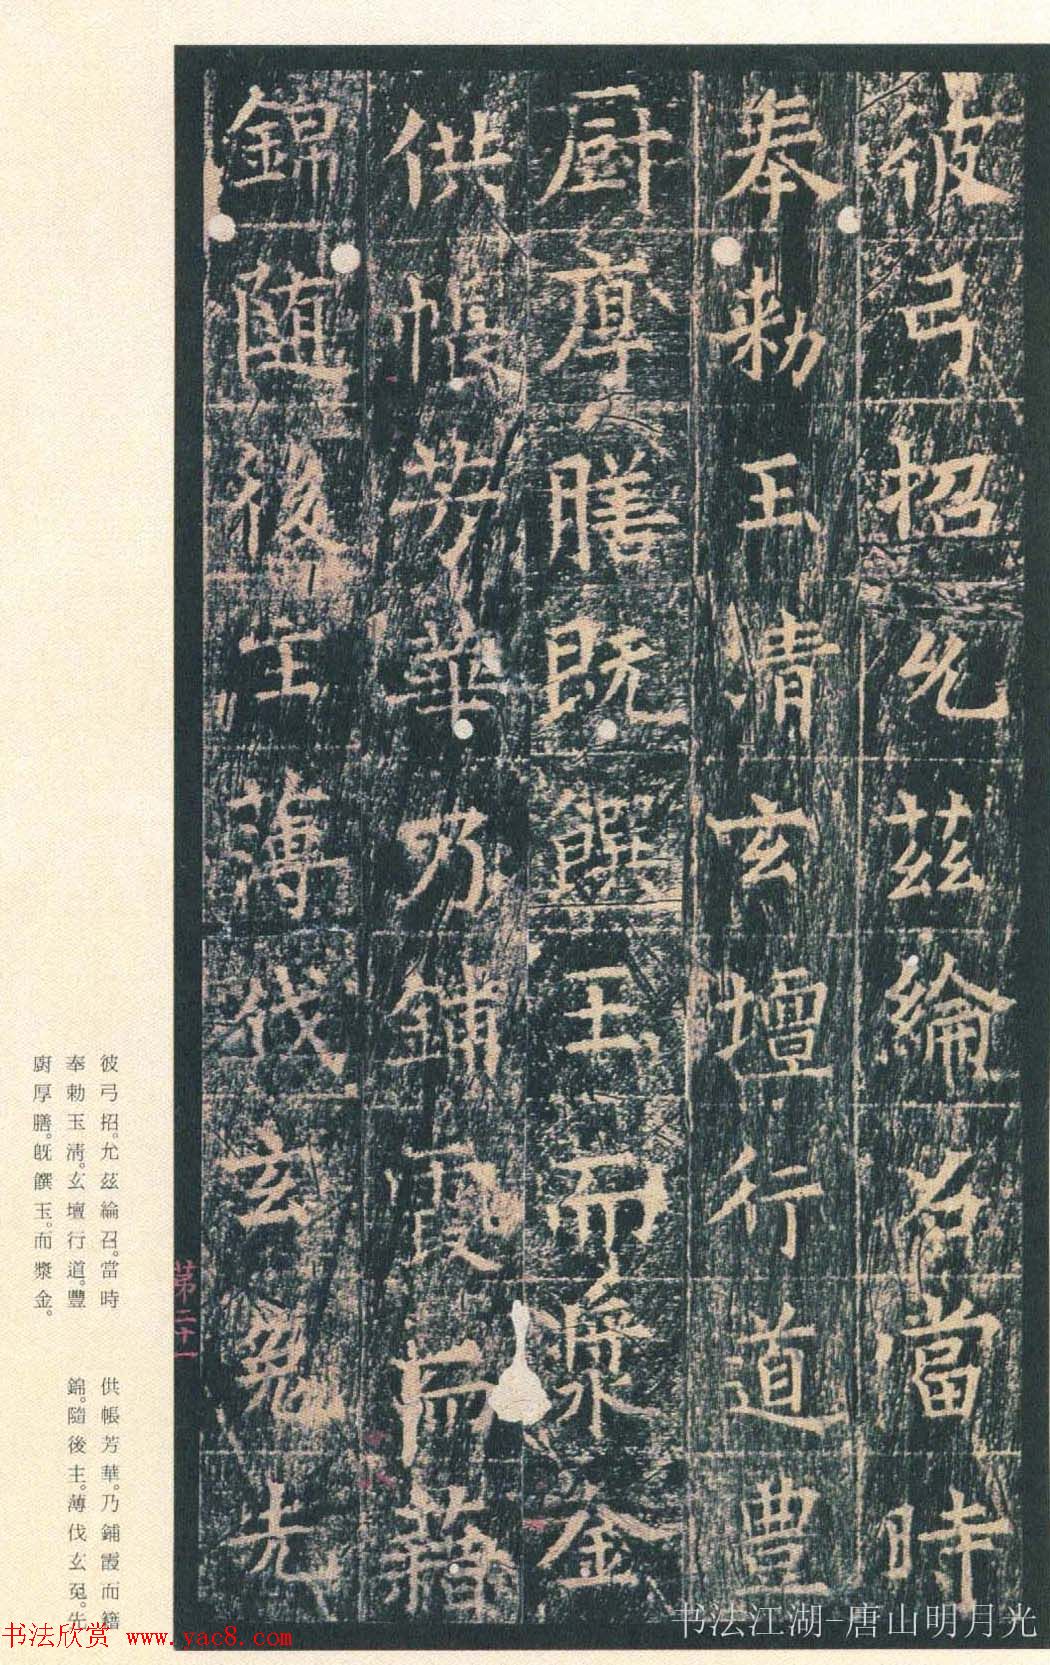 彼弓招允茲綸召當時
奉勑玉清玄壇行道豊
厨厚膳既饌玉而漿金
供帳芳華乃鋪霞而藉
錦隨後主薄伐玄兔先
彼弓招。允茲綸召。當時
奉勑玉清。玄壇行道。豐
廚厚膳。既饌玉。而漿金。
供帳芳華。乃鋪霞而籍
錦。隨後主。薄伐玄兔。先
第二十一
书法欣赏 www.yac8.com
书法江湖-唐山明月光